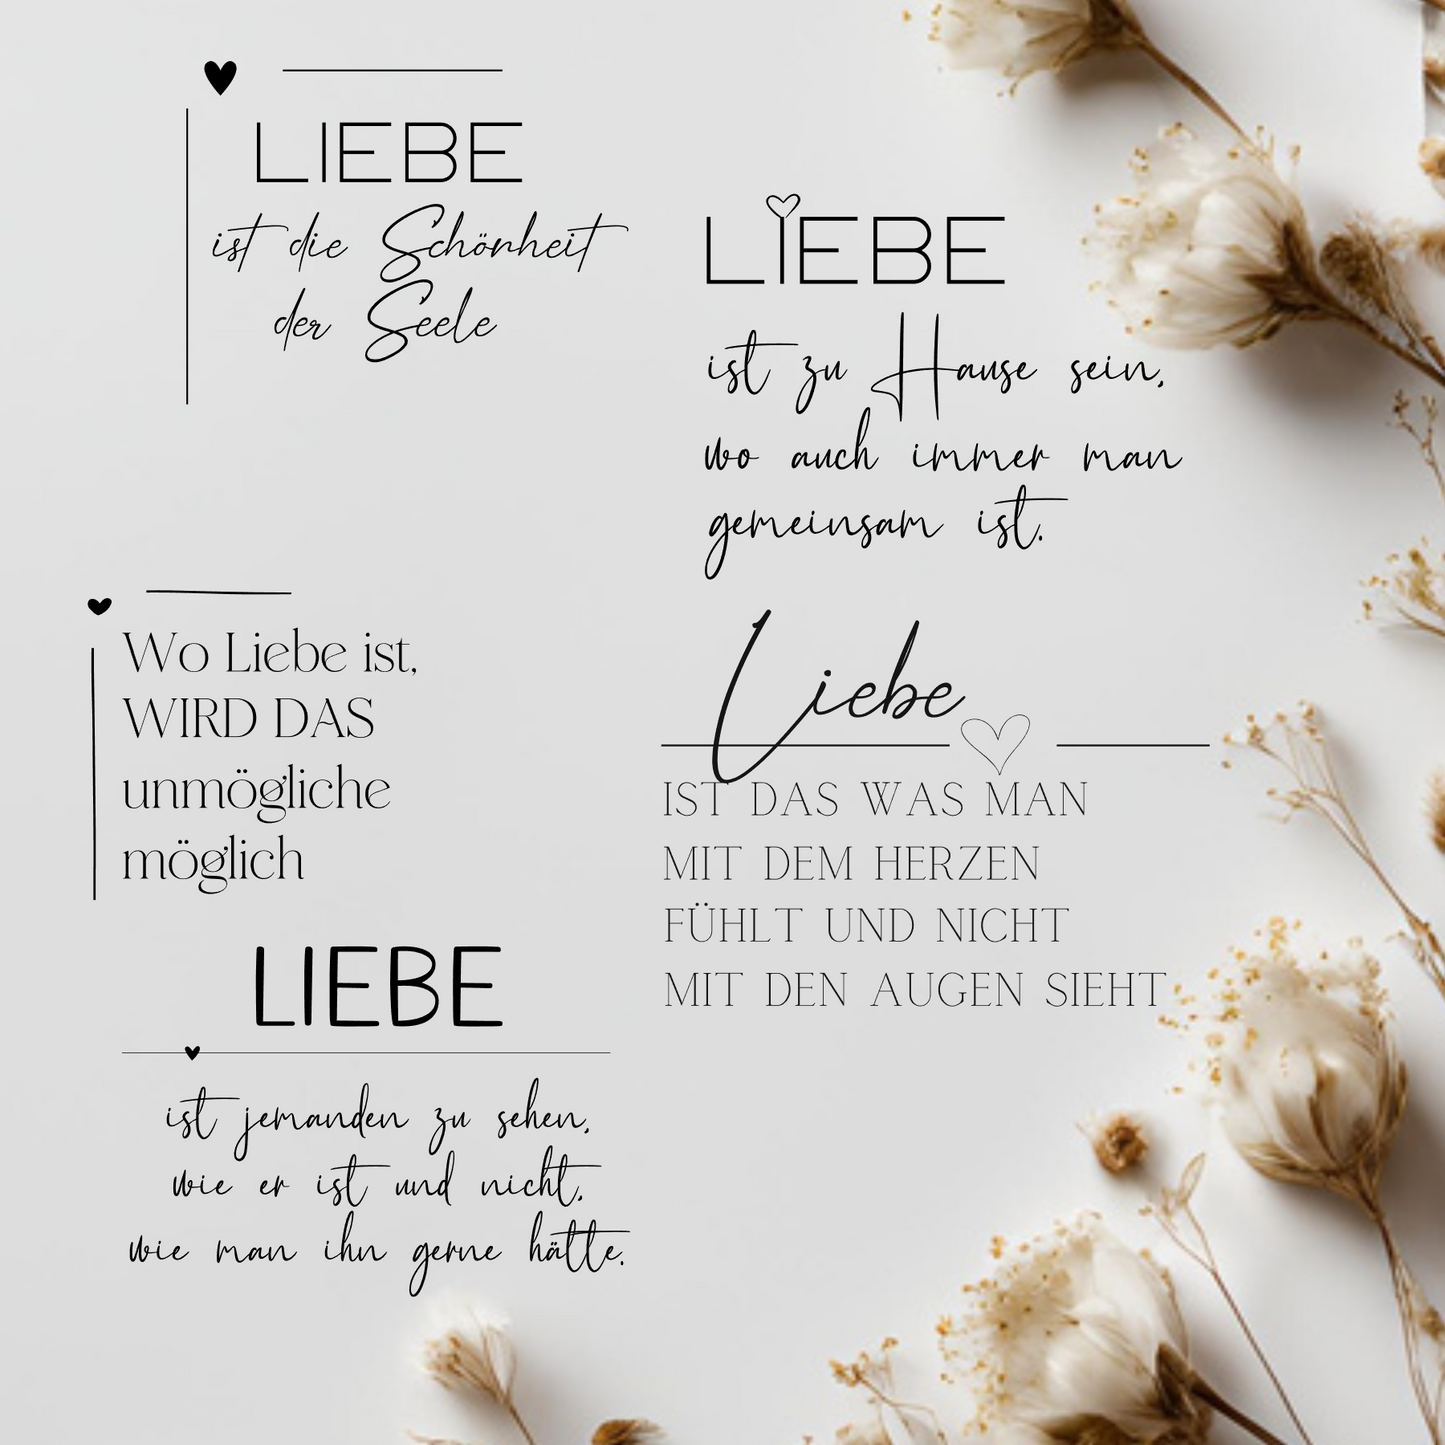 LIEBE
ist die Schönheit
der Seele
LIEBE
ist zu Hause sein,
wo auch immer man
gemeinsam ist.
Wo Liebe ist,
WIRD DAS
unmögliche
möglich
Liebe
IST DAS WAS MAN
MIT DEM HERZEN
FÜHLT UND NICHT
MIT DEN AUGEN SIEHT
LIEBE
ist jemanden zu sehen,
wie er ist und nicht,
wie man ihn gerne hätte.